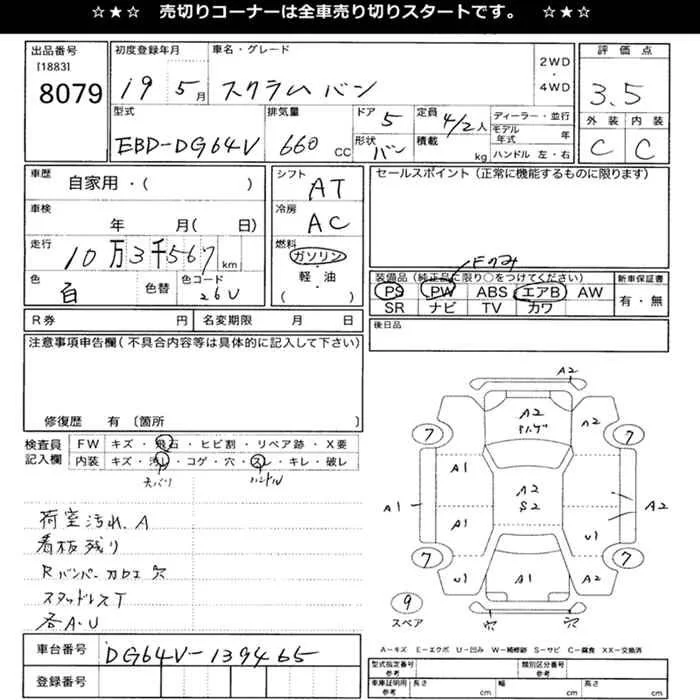 ☆★☆ 売切りコーナーは全車売り切りスタートです。 ☆★☆
出品番号
[1883]
8079
初度登録年月
19 5月
車名・グレード
スクラム バン
2WD
・
4WD
評価点
3.5
外装 内装
C C
型式
EBD-DG64V
排気量
660 CC
ドア
5
形状
バン
定員
4/2人
積載
kg
ディーラー・並行
モデル年式 年
ハンドル 左・右
車歴
自家用・( )
車検
年 月( 日)
走行
10万3千567km
色
白
色替
色コード
26U
シフト
AT
冷房
AC
燃料
ガソリン
・
軽・油
( )
セールスポイント(正常に機能するものに限ります)
装備品(純正品に限り○をつけてください)
PS PW ABS エアB AW
SR ナビ TV カワ
新車保証書
有・無
後日品
R券 円
名変期限 月 日
注意事項申告欄(不具合内容等は具体的に記入して下さい)
修復歴 有〔箇所 〕
検査員
記入欄
FW キズ・飛石・ヒビ割・リペア跡・X要
内装 キズ・汚レ・コゲ・穴・スレ・キレ・破レ
天バリ ハンドル
荷室汚れ、A
看板残り
Rバンパー加工穴
スタッドレスT
各A・U
A2
A2
A2
7 7
A1
A2
S2
A1
A1
A2
U1
7 7
U1
A1
A2
9
スペア
穴 穴
A−キズ E−エクボ U−凹み W−補修跡 S−サビ C−腐食 XX−交換済
車台番号
DG64V-139465
登録番号
型式指定番号
参考
類別区分番号
参考
車庫証明用
参考
長さ cm
幅 cm
高さ cm